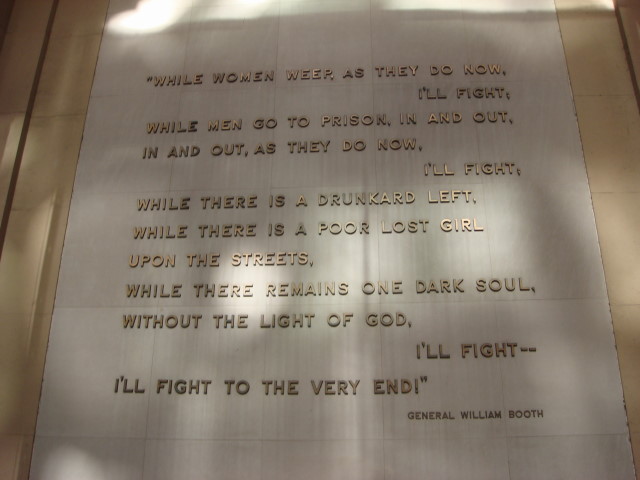 "WHILE WOMEN WEEP, AS THEY DO NOW,
I'LL FIGHT;
WHILE MEN GO TO PRISON, IN AND OUT,
IN AND OUT, AS THEY DO NOW,
I'LL FIGHT;
WHILE THERE IS A DRUNKARD LEFT,
WHILE THERE IS A POOR LOST GIRL
UPON THE STREETS,
WHILE THERE REMAINS ONE DARK SOUL,
WITHOUT THE LIGHT OF GOD,
I'LL FIGHT--
I'LL FIGHT TO THE VERY END!"
GENERAL WILLIAM BOOTH